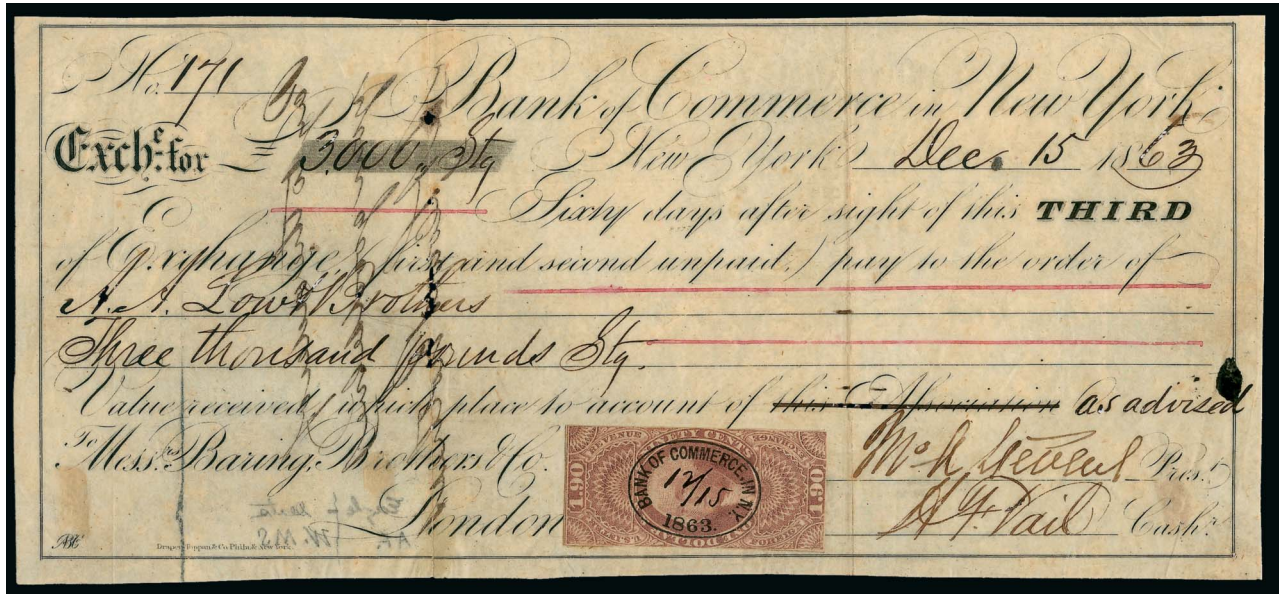 No. 171
Bank of Commerce in New York
Exchᵉ. for £ 3.000,, Stg New York Dec. 15 1863
Sixty days after sight of this THIRD
of Exchange, (first and second unpaid,) pay to the order of
A. A. Low & Brothers
Three thousand pounds Stg.
Value received, which place to account of this Association as advised
To
Messʳˢ Baring, Brothers & Co.
London
Presᵗ.
H. F. Vail Cashʳ.
NINETY CENTS
1.90
1.90
BANK OF COMMERCE, IN N.Y.
12/15
1863.
Draper, Toppan & Co. Philᵃ. & New York.